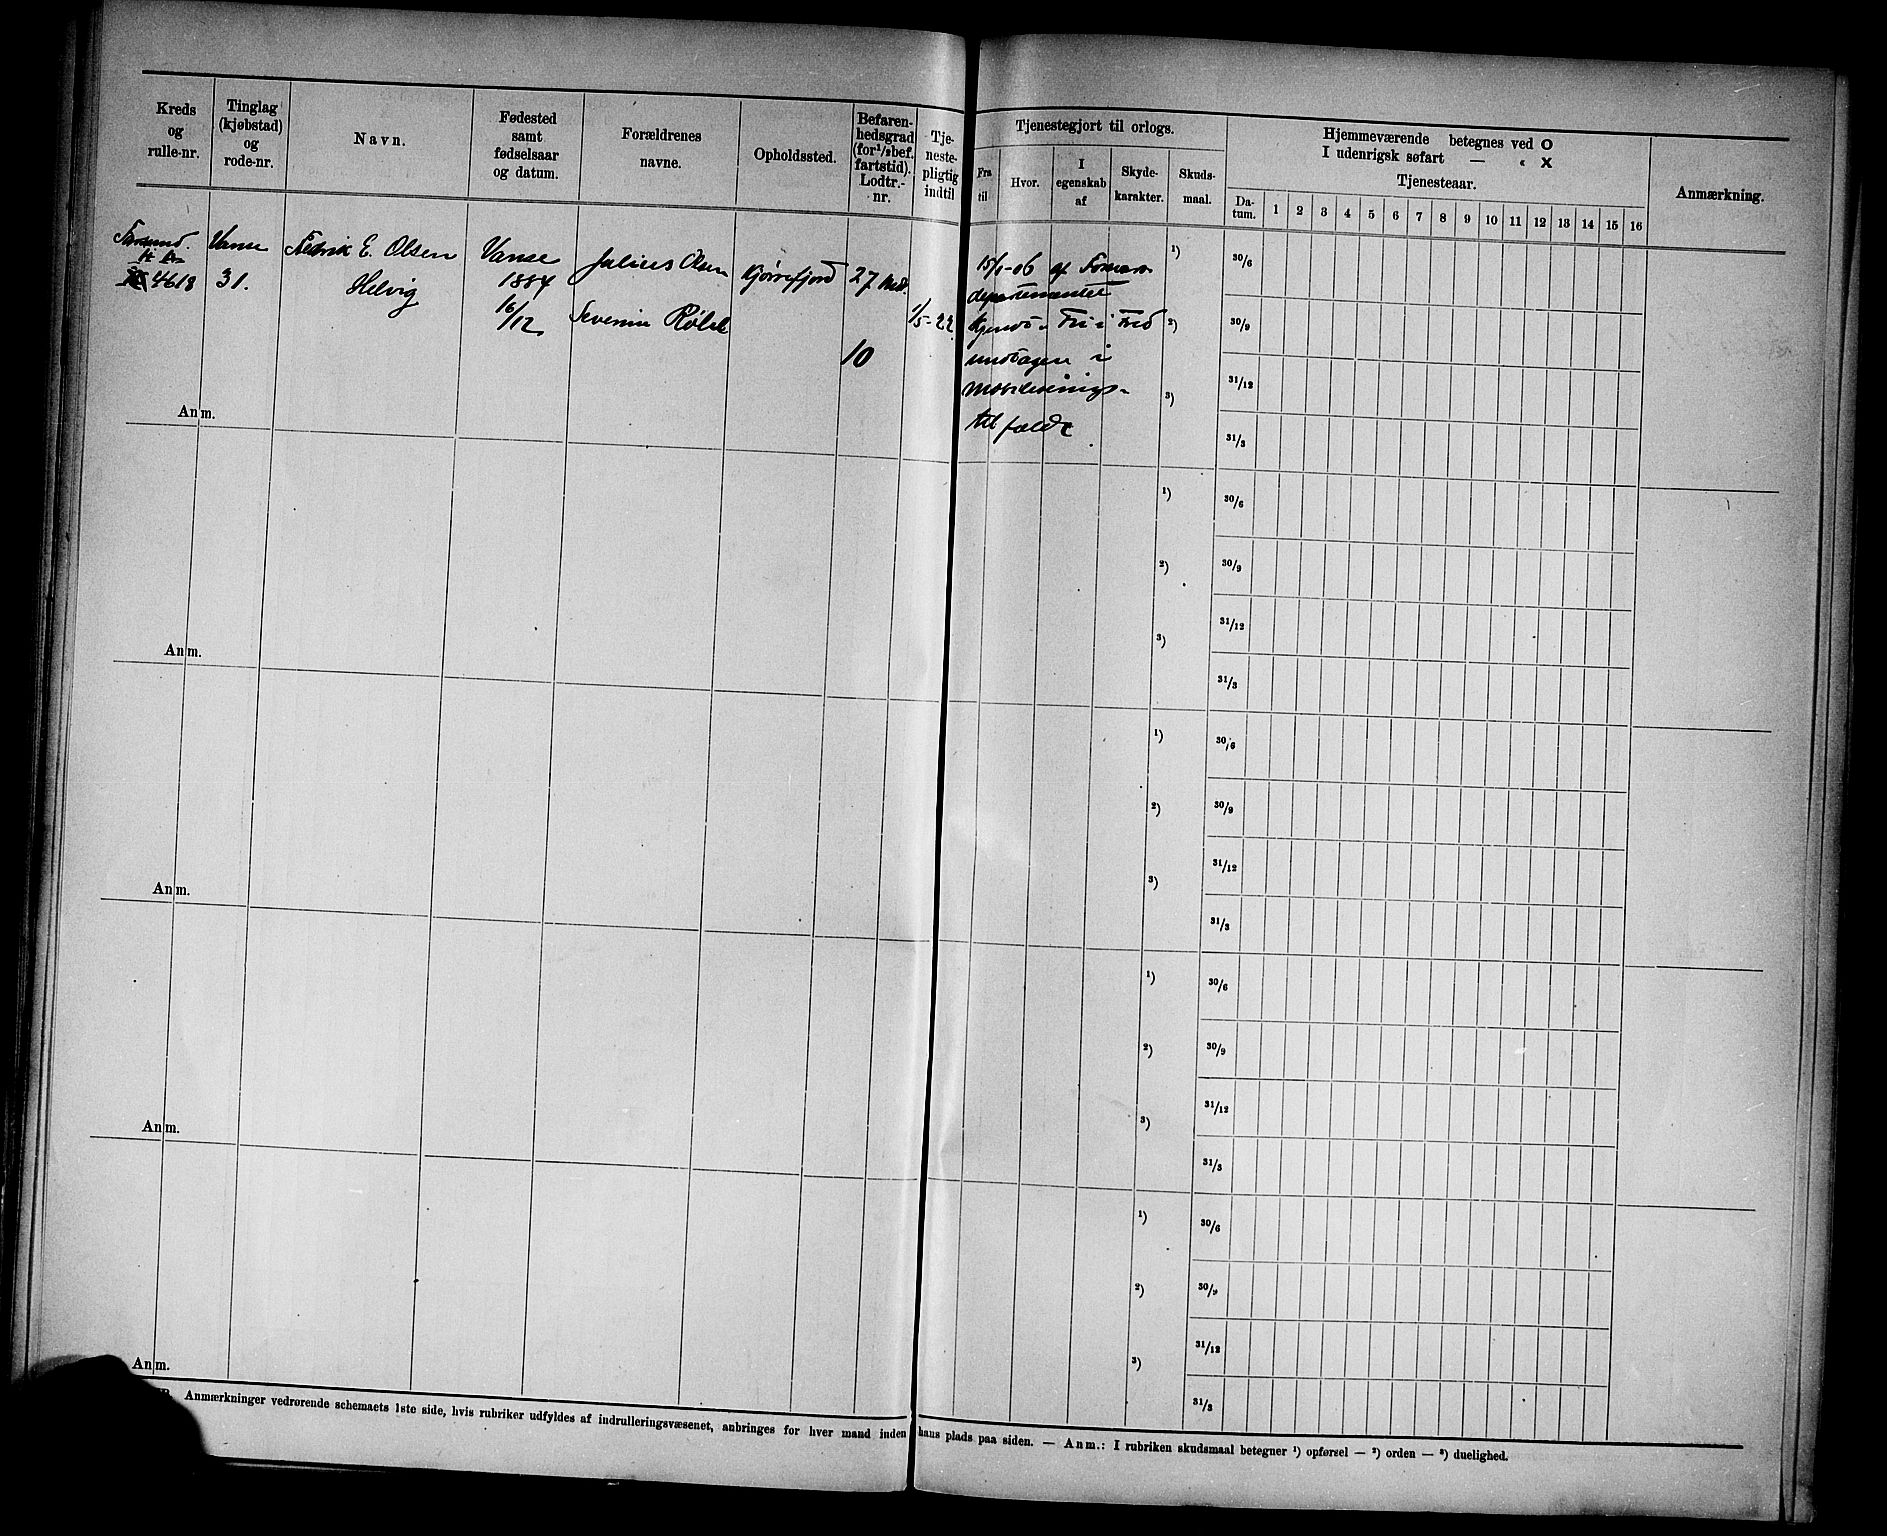 Kreds
og
rulle-nr.
Tinglag
(kjøbstad)
og
rode-nr.
Navn.
Fødested
samt
fødselsaar
og datum.
Forældrenes
navne.
Opholdssted.
Befaren-
hedsgrad
(for ¹/₂ bef.
fartstid).
Lodtr.-
nr.
Tje-
neste-
pligtig
indtil
Tjenestegjort til orlogs.
Fra
til
Hvor.
I
egenskab
af
Skyde-
karakter.
Skuds-
maal.
Hjemmeværende betegnes ved O
I udenrigsk søfart — « X
Tjenesteaar.
Da-
tum.
1 2 3 4 5 6 7 8 9 10 11 12 13 14 15 16
Anmærkning.
4618
Vanse
31.
Fredrik E. Olsen
Helvig
Vanse
1884
16/12
Julius Olsen
Severine
Kjørrefjord
27 Md.
10
1/5-22
15/1-06 af Forsvars-
departementet
kjendt Fri i Fred
undtagen i
mobiliserings-
tilfælde
¹)
²)
³)
30/6
30/9
31/12
31/3
Anm.
¹)
²)
³)
30/6
30/9
31/12
31/3
Anm.
¹)
²)
³)
30/6
30/9
31/12
31/3
Anm.
¹)
²)
³)
30/6
30/9
31/12
31/3
Anm.
¹)
²)
³)
30/6
30/9
31/12
31/3
Anm.
Anmærkninger vedrørende schemaets 1ste side, hvis rubriker udfyldes af indrulleringsvæsenet, anbringes for hver mand inden hans plads paa siden. — Anm.: I rubriken skudsmaal betegner ¹) opførsel — ²) orden — ³) duelighed.